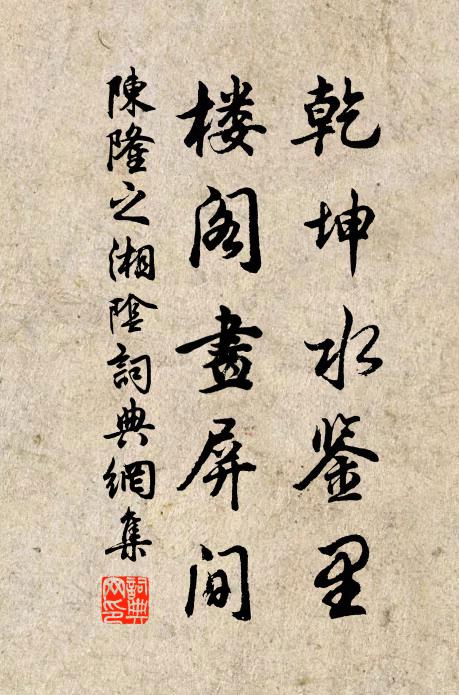 乾坤水鉴里
楼阁畫屏间
陳隆之湘陰詞典網集
詞典網印